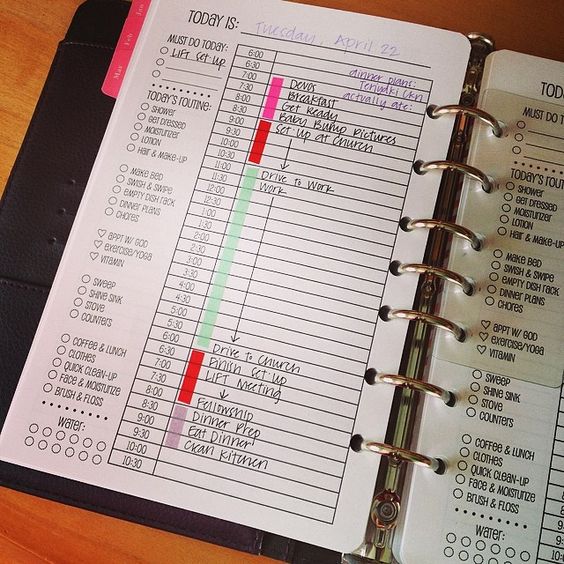 Jan
Feb
Mar
TODAY IS: Tuesday, April 22
MUST DO TODAY:
LIFT Set Up
TODAY'S ROUTINE:
SHOWER
GET DRESSED
MOISTURIZER
LOTION
HAIR & MAKE-UP
MAKE BED
SWISH & SWIPE
EMPTY DISH RACK
DINNER PLANS
CHORES
APPT W/ GOD
EXERCISE/YOGA
VITAMIN
SWEEP
SHINE SINK
STOVE
COUNTERS
COFFEE & LUNCH
CLOTHES
QUICK CLEAN-UP
FACE & MOISTURIZE
BRUSH & FLOSS
WATER:
dinner plans:
actually ate:
6:00
6:30
7:00
7:30 Devos
8:00 Breakfast
8:30 Get Ready
9:00 Baby Bump Pictures
9:30 Set Up at Church
10:00
10:30
11:00
11:30 Drive to Work
12:00 Work
12:30
1:00
1:30
2:00
2:30
3:00
3:30
4:00
4:30
5:00
5:30
6:00 Drive to Church
6:30 Finish Set Up
7:00 LIFT Meeting
7:30
8:00 Fellowship
8:30 Dinner Prep
9:00 Eat Dinner!
9:30 Clean Kitchen
10:00
10:30
TODA
MUST DO TODAY:
TODAY'S ROUTINE:
SHOWER
GET DRESSED
MOISTURIZER
LOTION
HAIR & MAKE-UP
MAKE BED
SWISH & SWIPE
EMPTY DISH RACK
DINNER PLANS
CHORES
APPT W/ GOD
EXERCISE/YOGA
VITAMIN
SWEEP
SHINE SINK
STOVE
COUNTERS
COFFEE & LUNCH
CLOTHES
QUICK CLEAN-UP
FACE & MOISTURIZE
BRUSH & FLOSS
WATER: